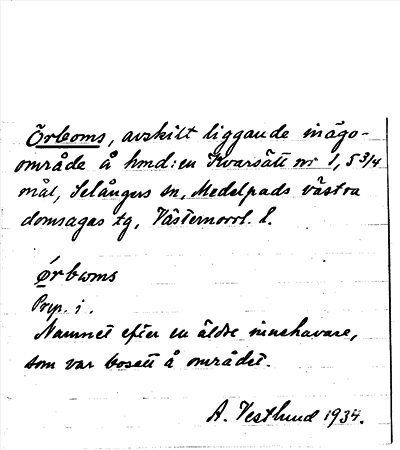 Örboms, avskilt liggande inägo-
område å hmd:en Kvarsätt nr 1, 5 3/4
mål, Selångers sn, Medelpads västra
domsagas tg, Västernorrl. l.
Ørbωms
Prep. i.
Namnet efter en äldre innehavare,
som var bosatt å området.
A. Vestlund 1934.